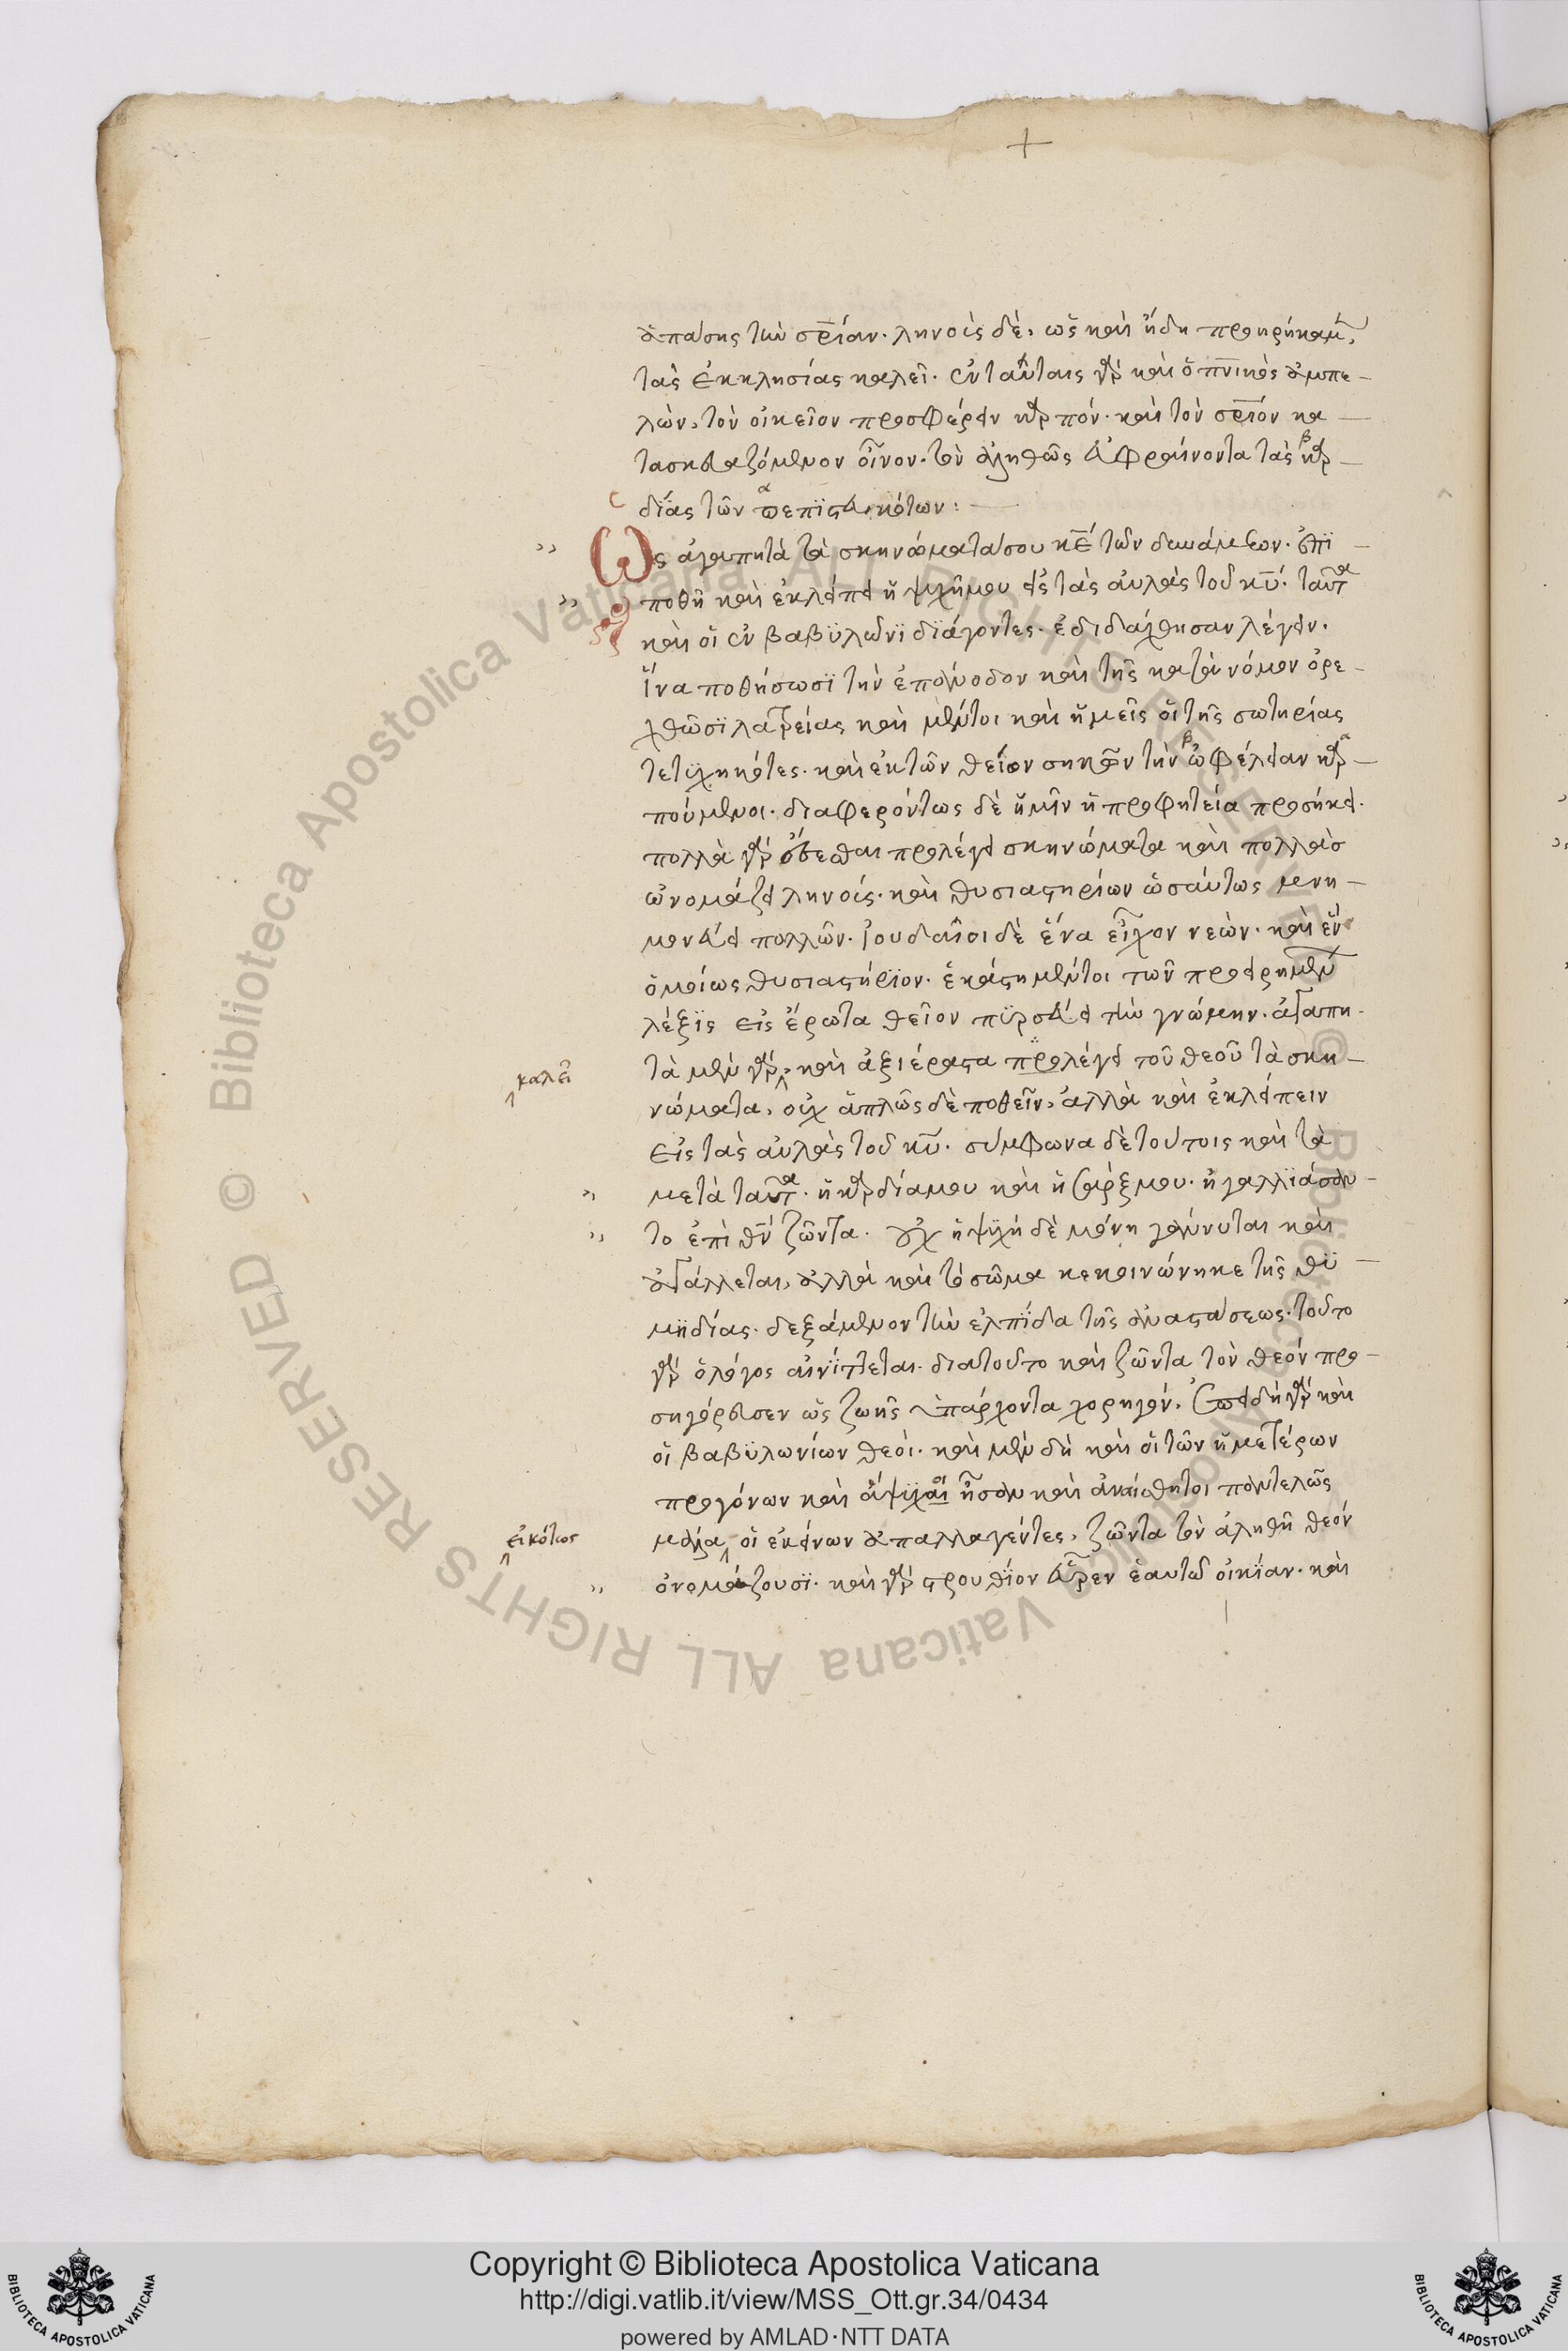 ἁπάσης τὴν σ̅ρίαν. ληνοὺς δὲ, ὡς καὶ ἤδη προηρήκαμ̅,
τὰς ἐκκλησίας καλεῖ. ἐν ταύταις γὰρ καὶ ὁ π̅νικὸς ἀμπε-
λὼν, τὸν οἰκεῖον προσφέρει καρπόν. καὶ τὸν σ̅ριόν κα-
τασκευαζόμενον οἶνον. τὸν ἀληθῶς εὐφραίνοντα τὰς καρ-
δΐας τῶν πεπϊστευκότων:
Ως ἀγαπητὰ τὰ σκηνώματά σου κ̅ε τῶν δυνάμεων. ἐπϊ
ποθῆ καὶ ἐκλείπει ἡ ψυχή μου εἰς τὰς αὐλὰς τοῦ κ̅υ. ταῦτα
καὶ οἱ ἐν βαβϋλῶνϊ δϊάγοντες. ἐδιδάχθησαν λέγειν.
ἵνα ποθήσωσϊ τὴν ἐπάνοδον καὶ τῆς κατὰ νόμον ὀρε-
χθῶσϊ λατρείας καὶ μέντοι καὶ ἡμεῖς οἱ τῆς σωτηρίας
τετϋχηκότες. καὶ ἐκ τῶν θείων σκηνῶν τὴν ὠφέλειαν καρ-
πούμενοι. διαφερόντως δὲ ἡμῖν ἡ προφητεία προσήκει.
πολλὰ γὰρ ἔσεσθαι προλέγει σκηνώματα καὶ πολλὰσ
ὠνομάζει ληνούς. καὶ θυσιαστηρίων ὡσαύτως μνη-
μονεύει πολλῶν. Ἰουδαῖοι δὲ ἕνα εἶχον νεών. καὶ ἓν
ὁμοίως θυσιαστήρϊον. ἑκάστη μέντοι τῶν προειρημένων
λέξϊς εἰς ἔρωτα θεῖον πϋρσεύει τὴν γνώμην. ἀγαπη-
τὰ μὲν γὰρ, καὶ ἀξιέραστα προλέγει τοῦ θεοῦ τὰ σκη-
καλεῖ
νώματα, οὐχ ἁπλῶς δὲ ποθεῖν, ἀλλὰ καὶ ἐκλείπειν
εἰς τὰς αὐλὰς τοῦ κ̅υ. σύμφωνα δὲ τούτοις καὶ τὰ
μετὰ ταῦτα. ἡ καρδία μου καὶ ἡ σάρξ μου. ἠγαλλϊάσαν-
το ἐπὶ θ̅ν ζῶντα. οὐχ ἡ ψϋχὴ δὲ μόνη γάννυται καὶ
ἀγάλλεται, ἀλλὰ καὶ τὸ σῶμα κεκοινώνηκε τῆς θϋ-
μϊδίας. δεξάμενον τὴν ἐλπΐδα τῆς ἀναστάσεως. τοῦτο
γὰρ ὁ λόγος αἰνϊττεται. διατοῦτο καὶ ζῶντα τὸν θεόν προ-
σηγόρευσεν ὡς ζωῆς ὑπάρχοντα χορηγόν. Ἐπειδὴ γὰρ καὶ
οἱ βαβϋλωνίων θεοὶ. καὶ μὲν δὴ καὶ οἱ τῶν ἡμετέρων
προγόνων καὶ ἄψϋχοι ἦσαν καὶ ἀναίσθητοι παντελῶς
μάλα οἱ ἐκείνων ἀπαλλαγέντες, ζῶντα τὸν ἀληθῆ θεὸν
εἰκότως
ὀνομάζουσϊ. καὶ γὰρ στρουθΐον εὗρεν ἑαυτῶ οἰκΐαν. καὶ
Copyright © Biblioteca Apostolica Vaticana
http://digi.vatlib.it/view/MSS_Ott.gr.34/0434
powered by AMLAD·NTT DATA
BIBLIOTECA APOSTOLICA VATICANA
BIBLIOTECA APOSTOLICA VATICANA
© Biblioteca Apostolica Vaticana ALL RIGHTS RESERVED
© Biblioteca Apostolica Vaticana ALL RIGHTS RESERVED